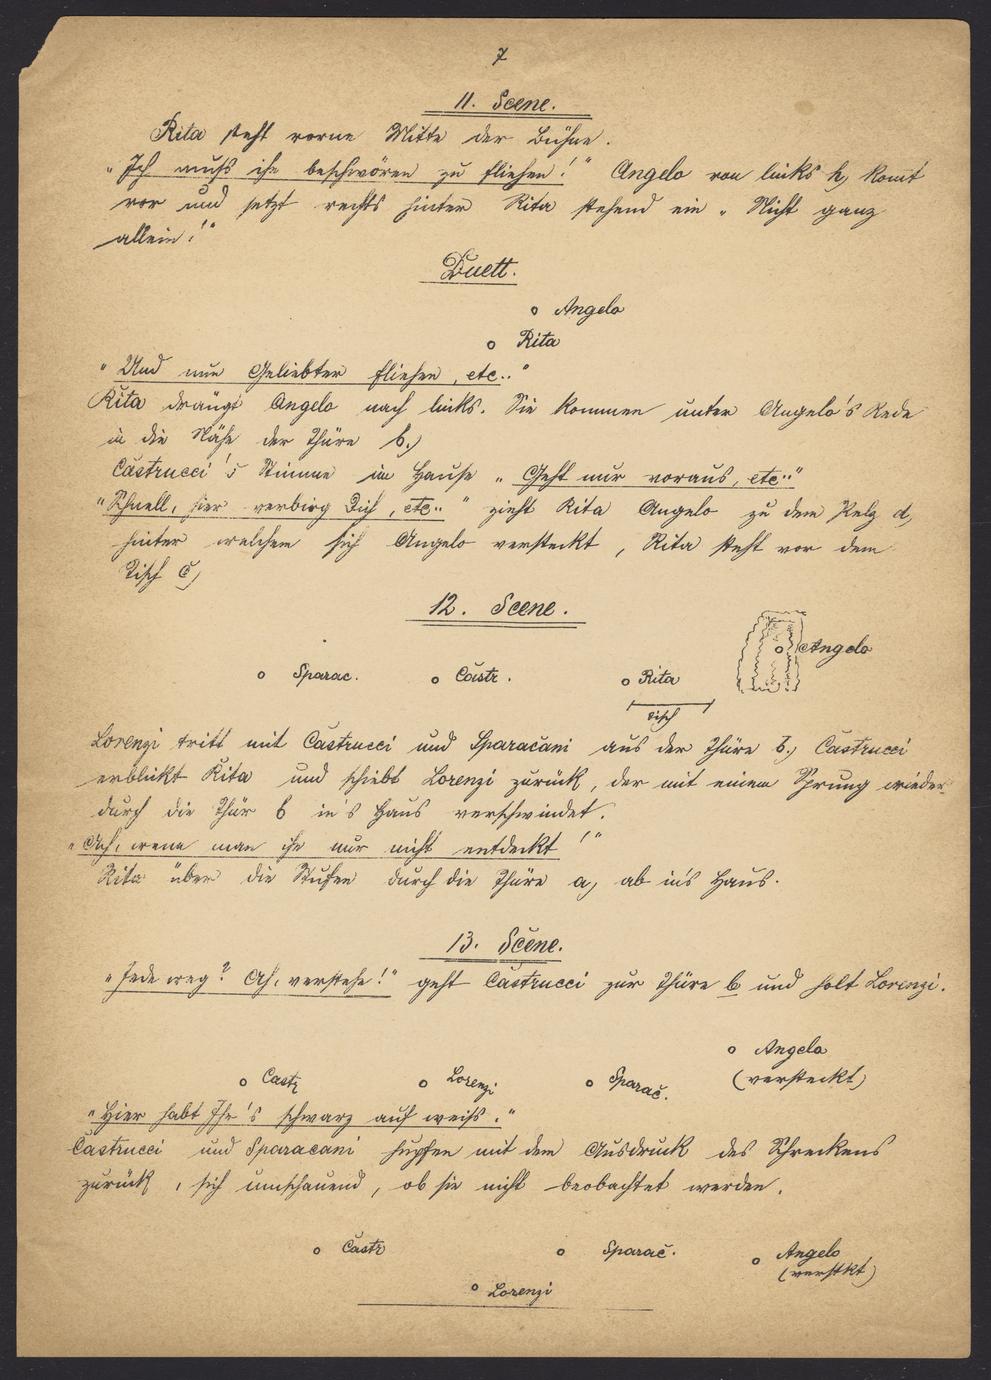 7
11. Scene.
Rita steht vorne Mitte der Bühne.
"Ich muſs ihn beschwören zu fliehen!" Angelo von links h, komt
vor und setzt rechts hinter Rita stehend ein "Nicht ganz
allein!"
Duett.
o Angelo
o Rita
"Und nun Geliebter fliehen, etc.."
Rita drängt Angelo nach links. Sie kommen unter Angelo's Rede
in die Nähe der Thüre b.)
Castrucci's Stimme im Hause "Geht nur voraus, etc.."
"Schnell, hier verbirg Dich, etc.." zieht Rita Angelo zu dem Pelz d,
hinter welchem sich Angelo versteckt, Rita steht vor dem
Tisch c)
12. Scene.
o Sparac. o Castr. o Rita o Angelo
Tisch
Lorenzi tritt mit Castrucci und Sparacani aus der Thüre b.) Castrucci
erblickt Rita und schiebt Lorenzi zurück, der mit einem Sprung wieder
durch die Thür b in's Haus verschwindet.
"Ach, wenn man ihn nur nicht entdeckt!"
Rita über die Stufen durch die Thüre a, ab in's Haus.
13. Scene.
"Jede weg? Ah, verstehe!" geht Castrucci zur Thüre b und holt Lorenzi.
o Angelo
(versteckt)
o Castr o Lorenzi o Sparac.
"Hier habt Ihr's schwarz auf weiſs."
Castrucci und Sparacani hupfen mit dem Ausdruck des Schreckens
zurück, sich umschauend, ob sie nicht beobachtet werden.
o Castr o Sparac. o Angelo
(verstkt)
o Lorenzi